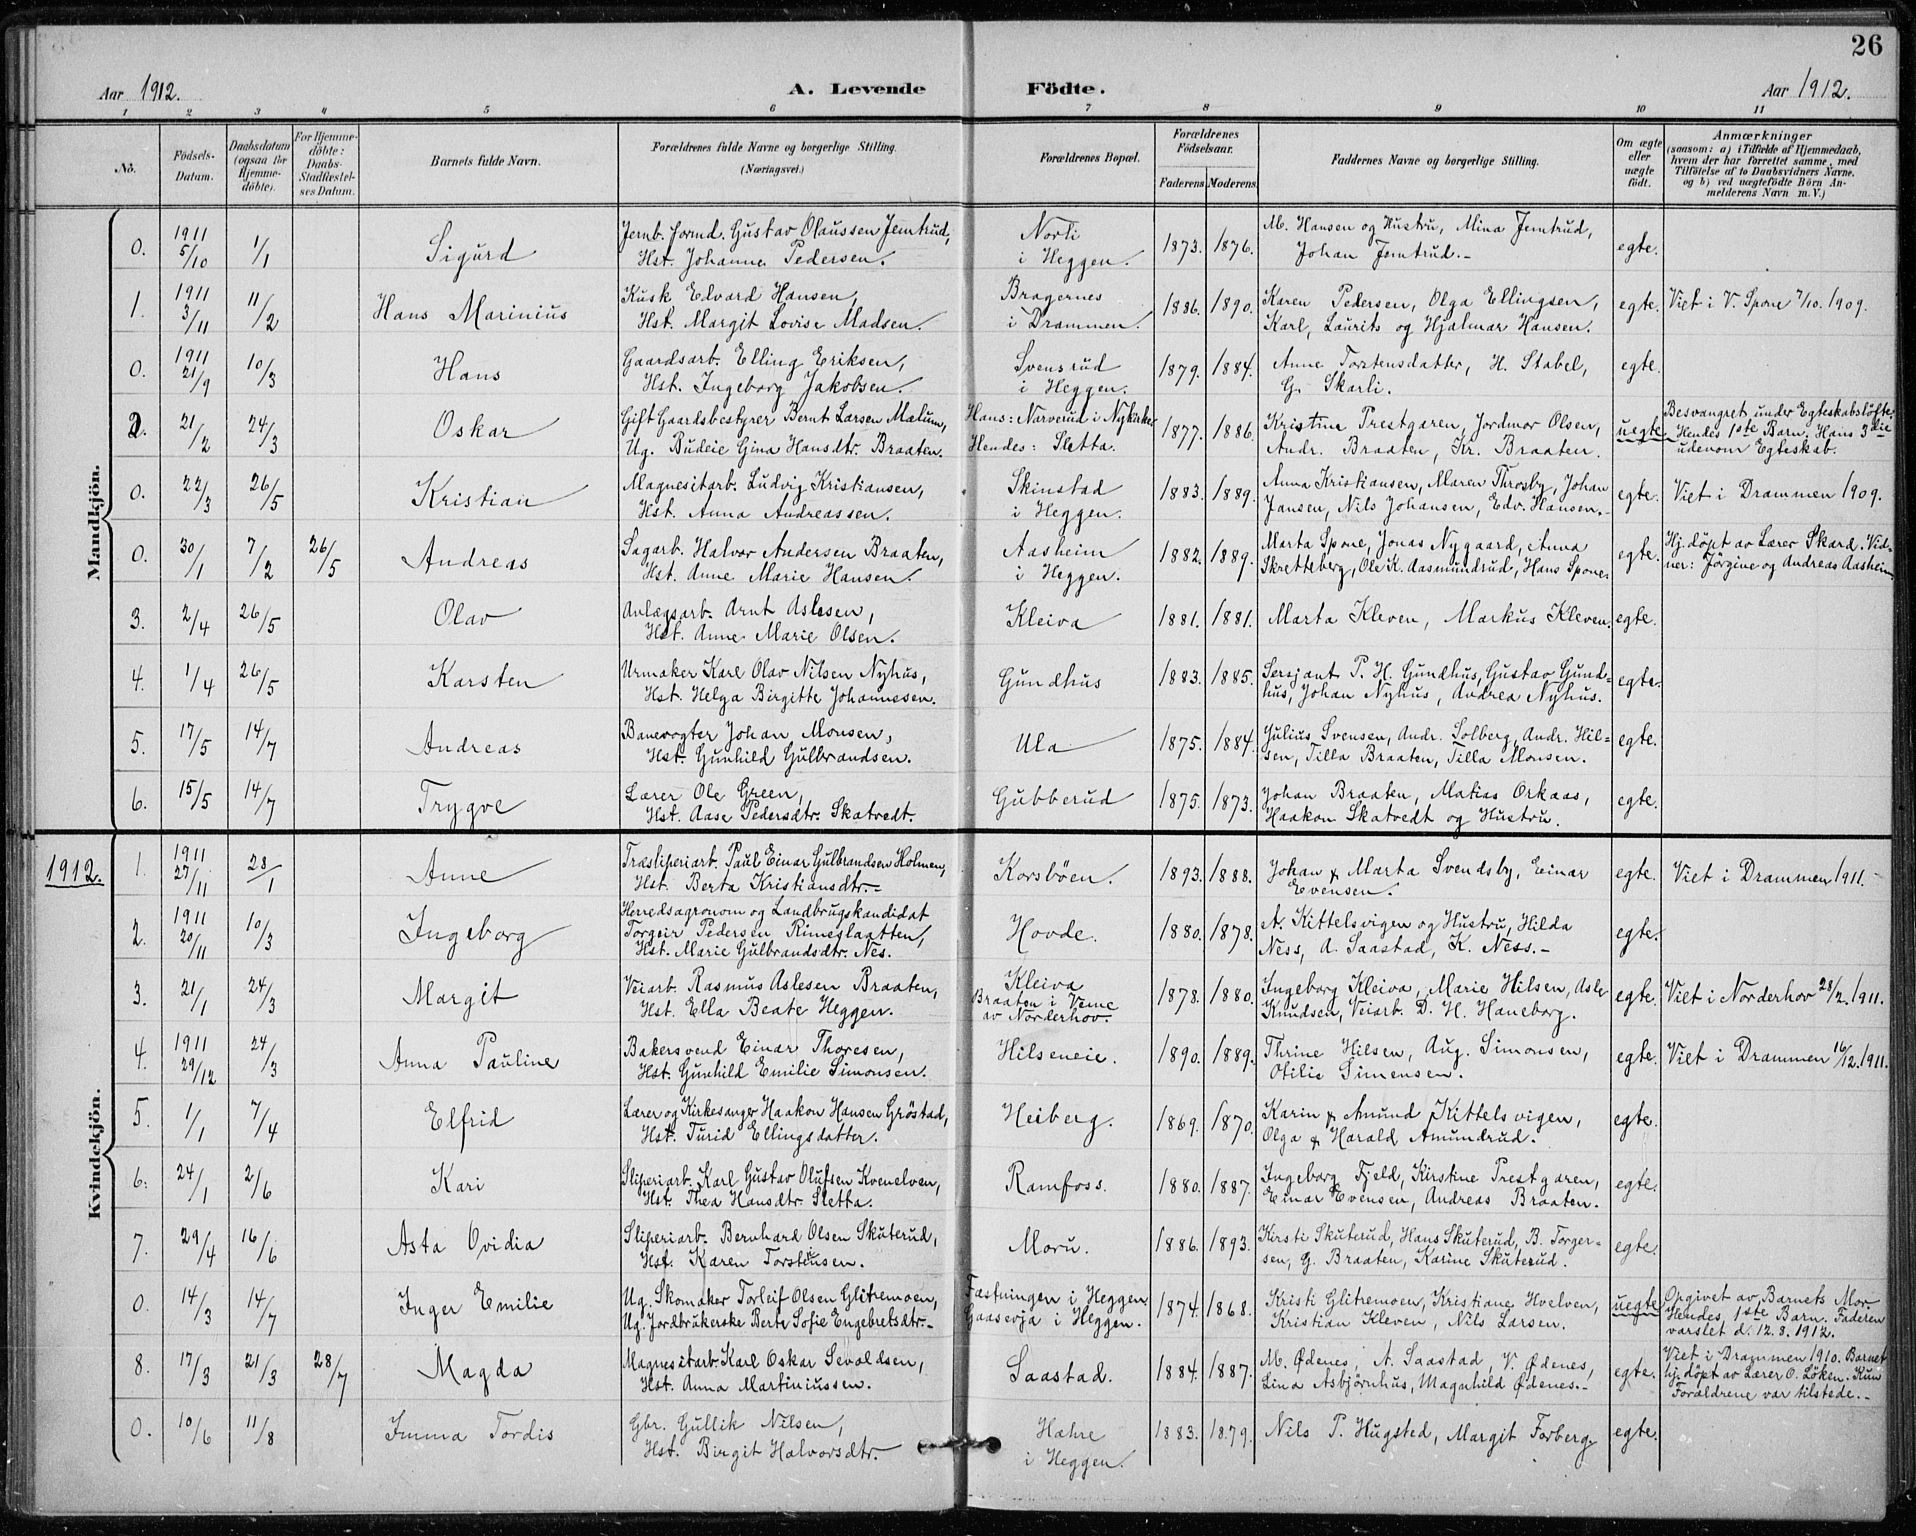 26
Aar 1912. A. Levende Födte. Aar 1912.
1 2 3 4 5 6 7 8 9 10 11
No. Födsels-Datum. Daabsdatum (ogsaa for Hjemme-döbte). For Hjemme-döbte: Daabs-Stadfæstel-ses Datum. Barnets fulde Navn. Forældrenes fulde Navne og borgerlige Stilling. (Næringsvei.) Forældrenes Bopæl. Forældrenes Födselsaar. Faderens Moderens Faddernes Navne og borgerlige Stilling. Om ægte eller uægte födt. Anmærkninger (saasom: a) i Tilfælde af Hjemmedaab, hvem der har forrettet samme, med Tilföielse af to Daabsvidners Navne, og b) ved uægtefödte Börn An-melderens Navn m. V.)
Mandkjön.
0. 1911 5/10 1/1 Sigurd Jernb. formd. Gustav Olaussen Jemtrud, Hst. Johanne Pedersen. Norli i Heggen. 1873. 1876. M. Hansen og Hustru, Mina Jemtrud, Johan Jemtrud.- egte.
1. 1911 3/11 11/2 Hans Marinius Kusk Edvard Hansen, Hst. Margit Lovise Madsen. Bragernes i Drammen. 1886. 1890. Karen Pedersen, Olga Ellingsen, Karl, Laurits og Hjalmar Hansen. egte. Viet i V. Spone 7/10. 1909.
0. 1911 21/9 10/3 Hans Gaardsarb. Elling Eriksen, Hst. Ingeborg Jakobsen. Svensrud i Heggen. 1879. 1884. Anne Torstensdatter, H. Stabel, G. Skarli. egte.
2. 21/2 24/3 Oskar Gift Gaardsbestyrer Bernt Larsen Mælum, Ug. Budeie Gina Hansdtr. Braaten. Hans: Narverud i Nykirke Hendes: Sletta. 1877. 1886. Kristine Prestgaren, Jordmor Olsen, Andr. Braaten, Kr. Braaten. uegte Besvangret under Egteskabsløfte. Hendes 1ste Barn. Hans 3die udenom Egteskab.
0. 22/3 26/5 Kristian Magnesitarb. Ludvig Kristiansen, Hst. Anna Andreassen. Skinstad i Heggen. 1883. 1889. Anna Kristiansen, Maren Throsby, Johan Jansen, Nils Johansen, Edv. Hansen.- egte. Viet i Drammen 1909.
0. 30/1 7/2 26/5 Andreas Sagarb. Halvor Andersen Braaten, Hst. Anne Marie Hansen. Aasheim i Heggen. 1882. 1889. Marta Spone, Jonas Nygaard, Anna Skretteberg, Ole K. Aasmundrud, Hans Spone. egte. Hj. døpt av Lærer Skard. Vid-ner: Jørgine og Andreas Aasheim.
3. 2/4 26/5 Olav Anlægsarb. Arnt Aslesen, Hst. Anne Marie Olsen. Kleiva 1881. 1881. Marta Kleven, Markus Kleven. egte.
4. 1/4 26/5 Karsten Urmaker Karl Olav Nilsen Nyhus, Hst. Helga Birgitte Johannesen. Gundhus 1883. 1885. Sersjant P. H. Gundhus, Gustav Gund-hus, Johan Nyhus, Andrea Nyhus. egte.
5. 17/5 14/7 Andreas Banevogter Johan Monsen, Hst. Gunhild Gulbrandsen. Ula 1875. 1884. Julius Svensen, Andr. Solberg, Andr. Hil-sen, Tilla Braaten, Tilla Monsen. egte.
6. 15/5 14/7 Trygve Lærer Ole Green, Hst. Aase Pedersdtr. Skatvedt. Gubberud 1875. 1873. Johan Braaten, Matias Orkaas, Haakon Skatvedt og Hustru. egte.
1912. Kvindekjön.
1. 1911 27/11 28/1 Anne Træsliperiarb. Paul Einar Gulbrandsen Holmen, Hst. Berta Kristiansdtr.- Korsbøen. 1893. 1888. Johan & Marta Svendsby, Einar Evensen. egte. Viet i Drammen 1911.
2. 1911 20/11 10/3 Ingeborg Herredsagronom og Landbrugskandidat Torgeir Pedersen Rimeslaatten, Hst. Marie Gulbrandsdtr. Nes. Hovde. 1880. 1878. A. Kittelsvigen og Hustru, Hilda Ness, A. Saastad, K. Ness.- egte.
3. 21/1 24/3 Margit Veiarb. Rasmus Aslesen Braaten, Hst. Ella Beate Heggen. Kleiva Braaten i Veme av Norderhov. 1878. 1880. Ingeborg Kleiva, Marie Hilsen, Asle Knudsen, Veiarb. D. H. Haneborg. egte. Viet i Norderhov 28/2. 1911.
4. 1911 29/12 24/3 Anna Pauline Bakersvend Einar Thoresen, Hst. Gunhild Emilie Simonsen. Hilseneie. 1890. 1889. Thrine Hilsen, Aug. Simonsen, Otilie Simensen. egte. Viet i Drammen 16/12. 1911.
5. 1/1 7/4 Elfrid Lærer og Kirkesanger Haakon Hansen Grøstad, Hst. Turid Ellingsdatter. Heiberg. 1869. 1870. Karin & Amund Kittelsvigen, Olga & Harald Amundrud. egte.
6. 24/1 2/6 Kari Sliperiarb. Karl Gustav Olufsen Kvenelven, Hst. Thea Hansdtr. Sletta. Ramfoss. 1880. 1887. Ingeborg Fjeld, Kirstine Prestgaren, Einar Evensen, Andreas Braaten. egte.
7. 29/4 16/6 Asta Ovidia Sliperiarb. Bernhard Olsen Skuterud, Hst. Karen Torstensen. Moru. 1886. 1893. Kirsti Skuterud, Hans Skuterud, B. Torger-sen, G. Braaten, Karine Skuterud. egte.
0. 14/3 14/7 Inger Emilie Ug. Skomaker Torleif Olsen Glitremoen, Ug. Jordbrukerske Berte Sofie Engebretsdtr.- Fæstningen i Heggen Gaasevja i Heggen. 1874. 1868. Kristi Glitremoen, Kristiane Hvelven, Kristian Kleven, Nils Larsen. uegte Opgivet av Barnets Mor. Hendes 1ste Barn. Faderen varslet d. 12.8. 1912.
8. 17/3 21/3 28/7 Magda Magnesitarb. Karl Oskar Sevaldsen, Hst. Anna Martiniussen. Saastad. 1884. 1887. M. Ødenes, A. Saastad, V. Ødenes, Lina Asbjørnhus, Magnhild Ødenes.- egte. Viet i Drammen 1910. Barnet hj. døpt av Lærer O. Løken. Kun Forældrene var tilstede.-
0. 10/6 11/8 Imma Tordis Gbr. Gullik Nilsen, Hst. Birgit Halvorsdtr. Hæhre i Heggen. 1883. 1879. Nils P. Hugsted, Margit Forberg. egte.